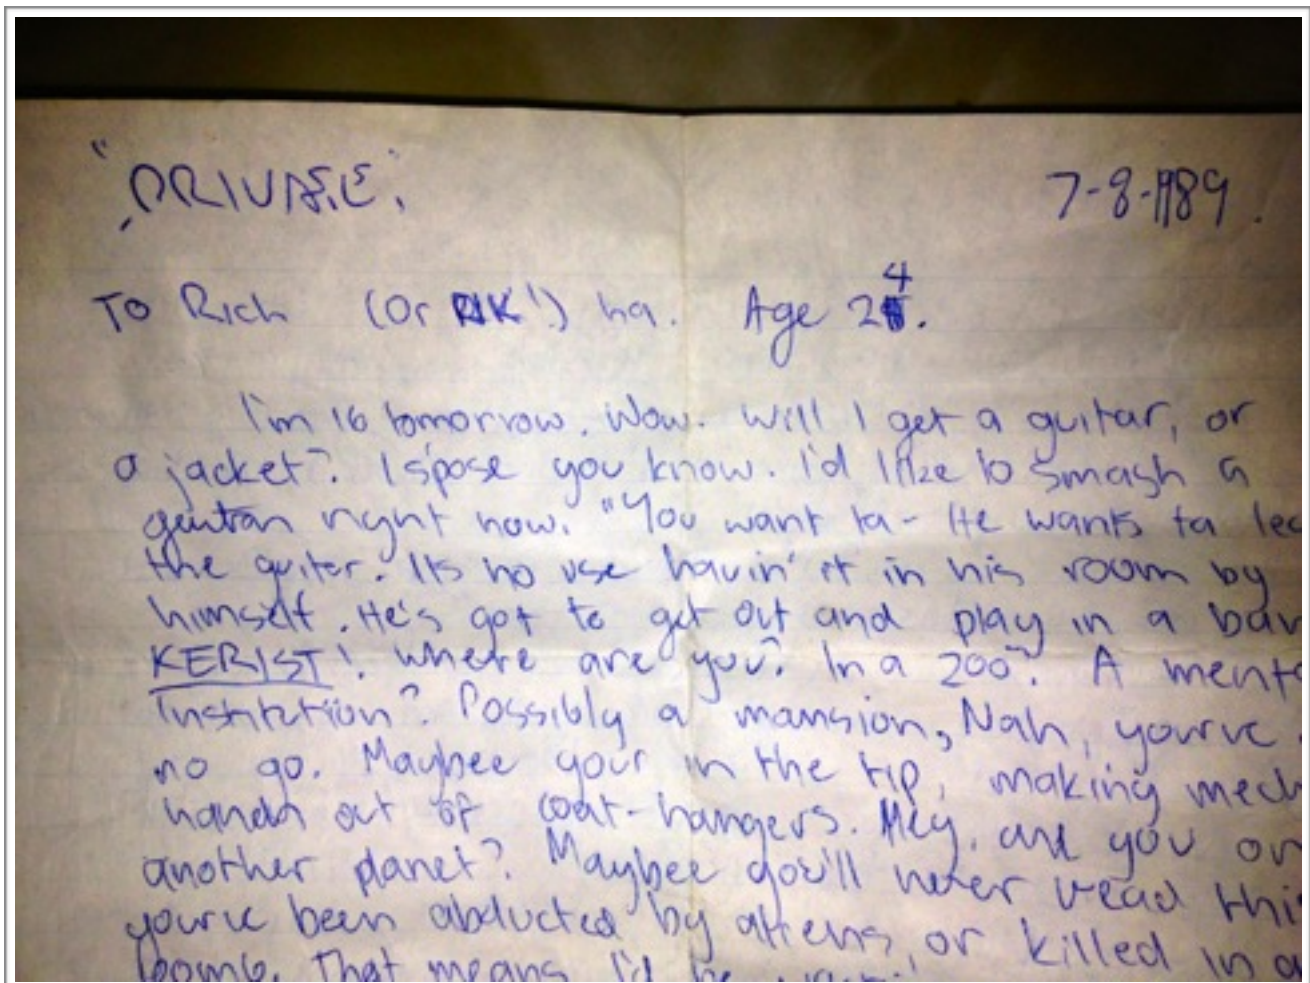 "PRIVATE".
7-8-1989.
To Rich (Or RIK!) ha. Age 24.
I'm 16 tomorrow. Wow. Will I get a guitar, or
a jacket? I spose you know. I'd like to smash a
right now. "You want ta - He wants ta
the guiter. Its no use havin' it in his room by
himself. He's got to get out and play in a
KERIST! Where are you? In a zoo? A
Institution? Possibly a mansion, Nah, yourve
no go. Maybee your in the tip, making
out of coat-hangers. Hey, are you on
another planet? Maybee you'll never read
yourve been abducted by aliens, or killed in a
bomb. That means I'd be